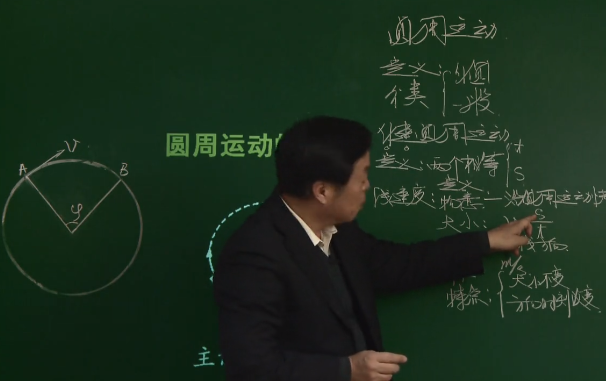 圆周运动
定义:
分类
匀圆
一般
圆周运动的
匀速圆周运动
定义:两个相等
t
S
线速度:
定义
物意:
圆周运动
大小:
S
t
m/s
特点:
大小不变
方向时刻改变
A
V
B
φ
主